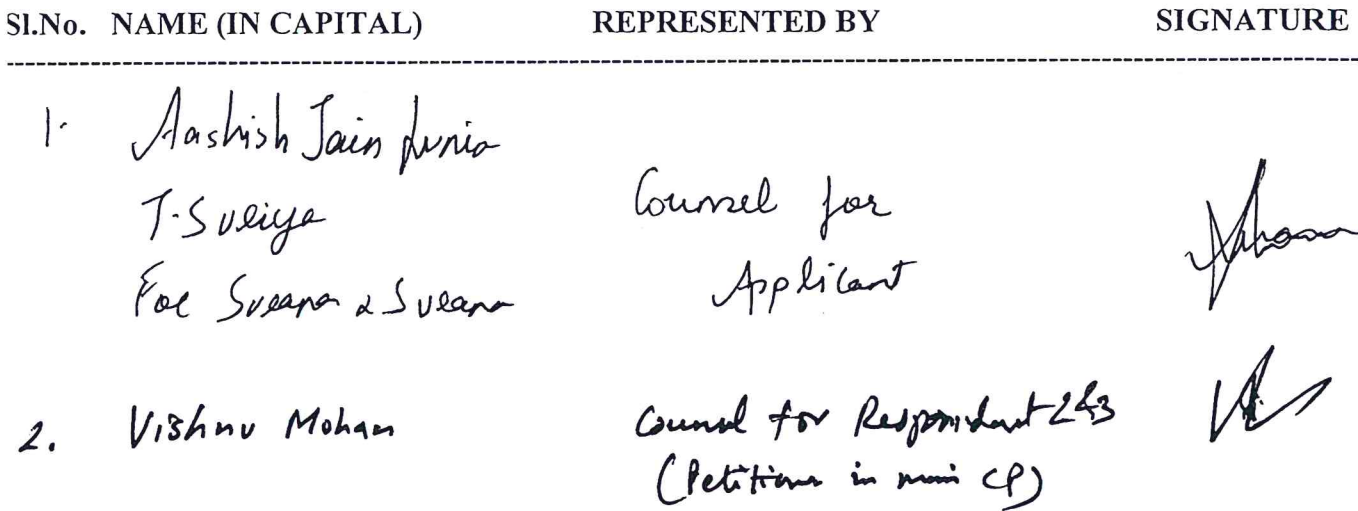 Sl.No. NAME (IN CAPITAL) REPRESENTED BY SIGNATURE
1. Aashish Jain Lunia
T. Suriya Counsel for
For Surana & Surana Applicant
2. Vishnu Mohan Counsel for Respondent 2&3
(Petitioner in main CP)